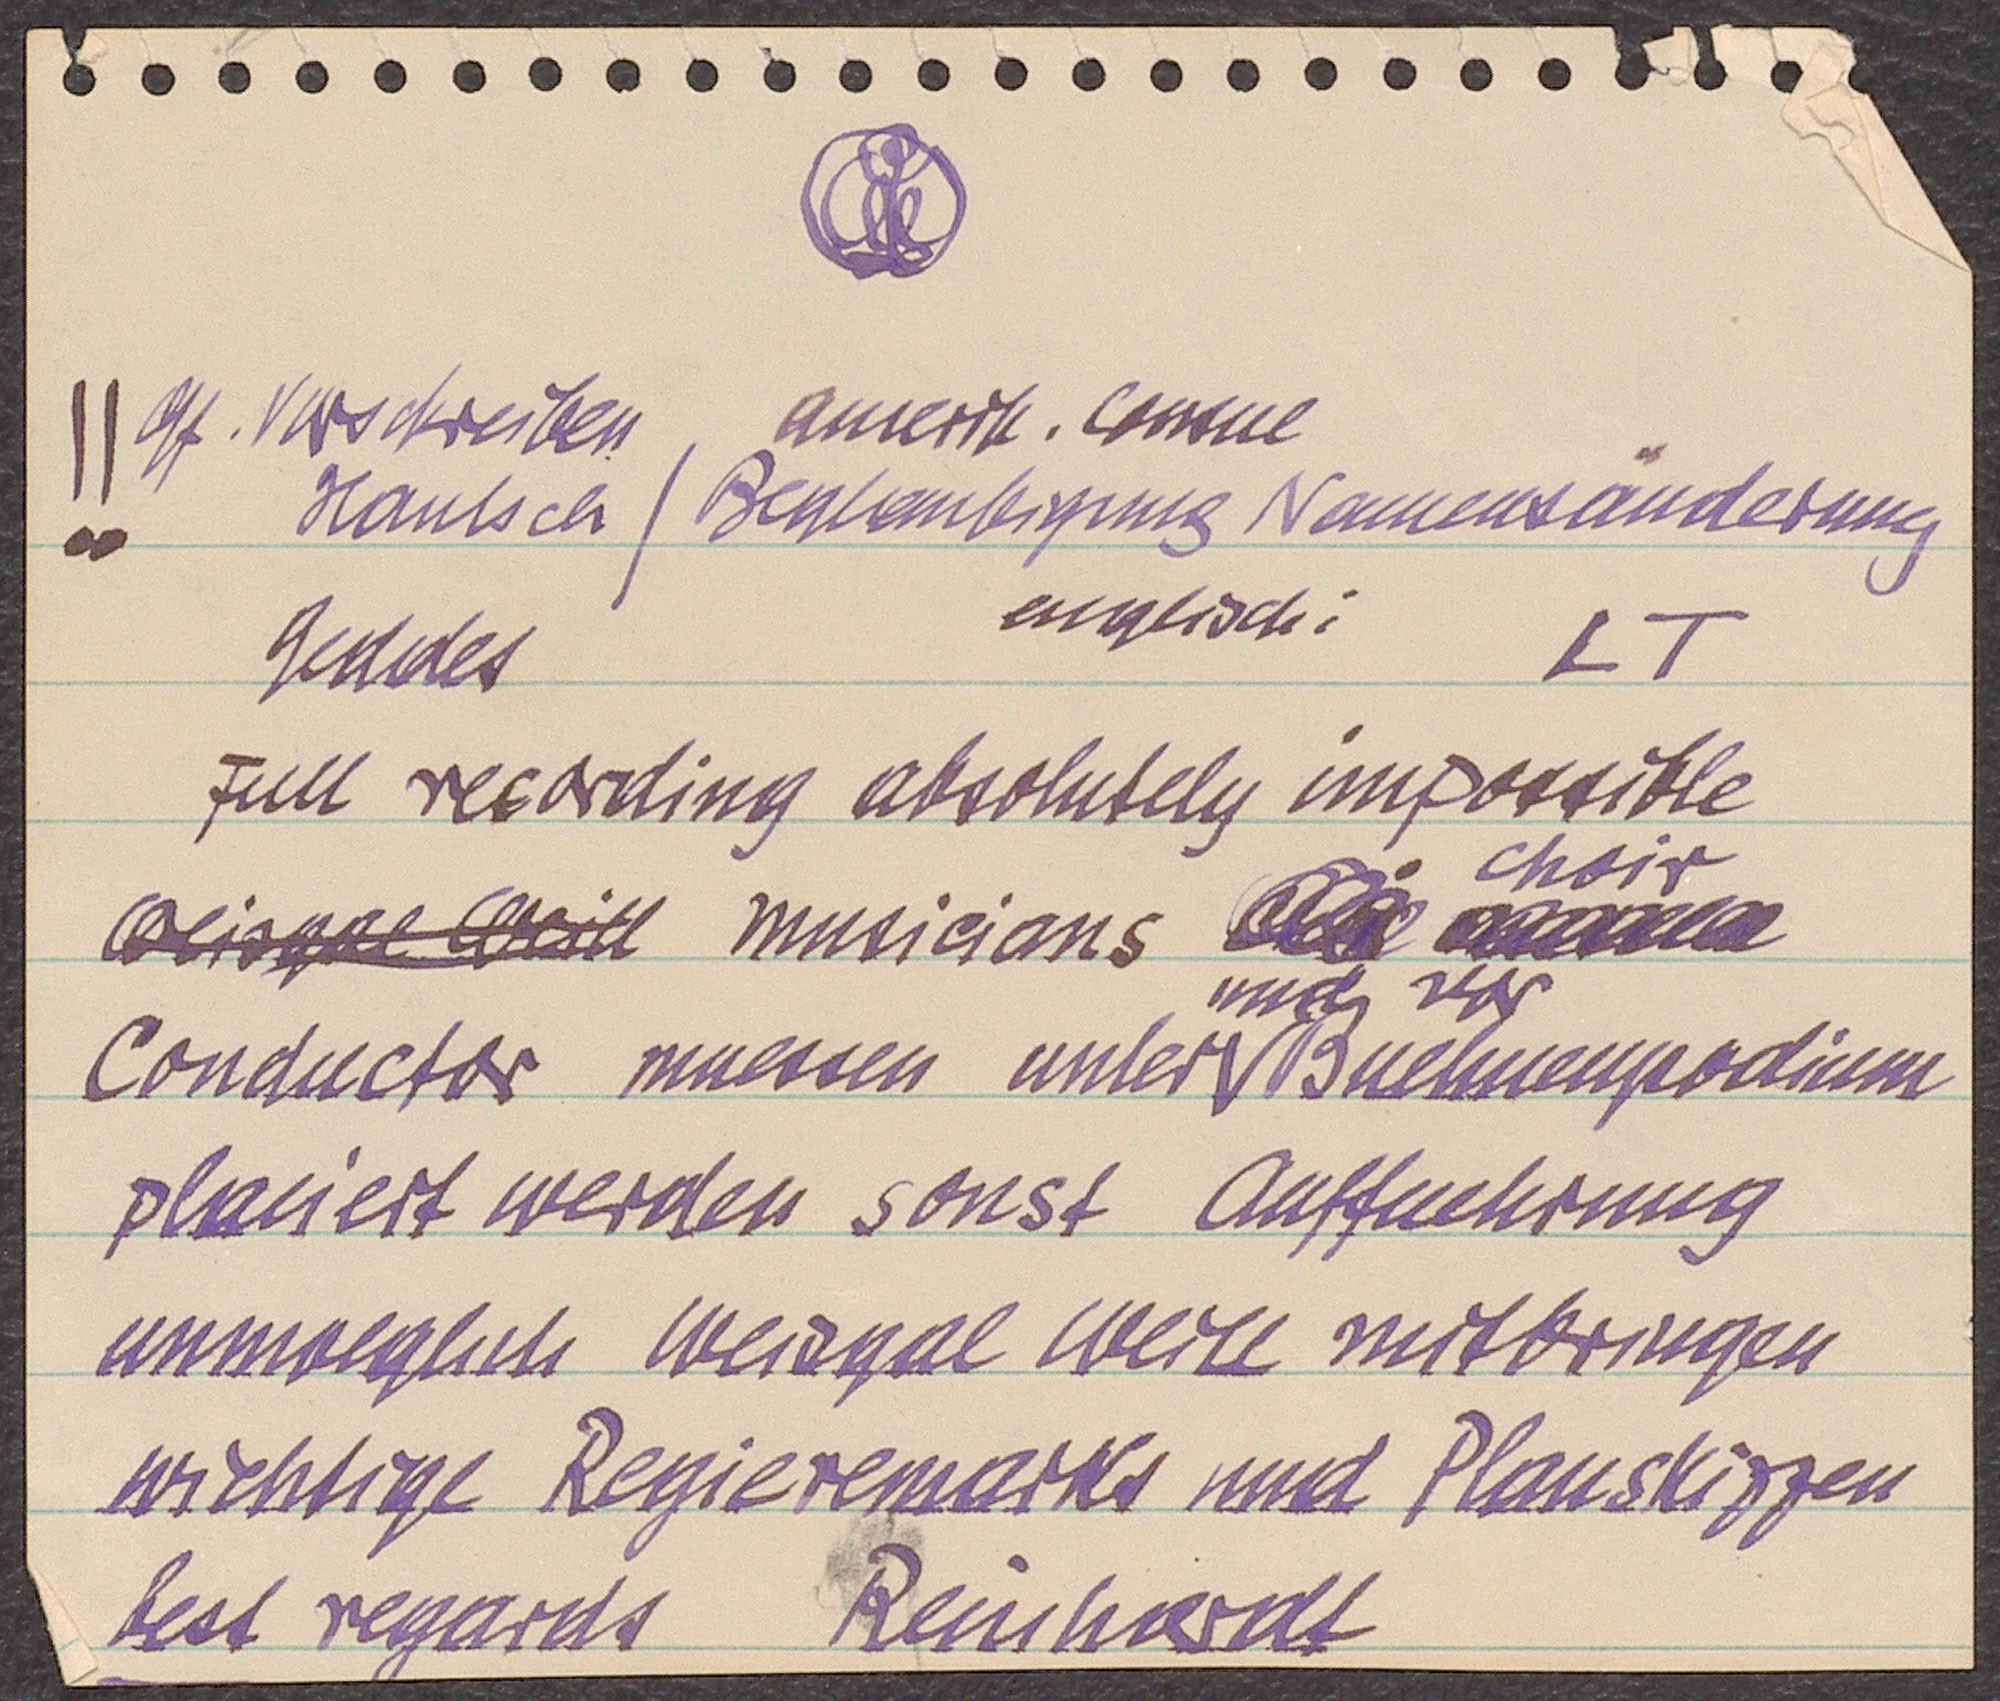 !! Gf. Vorschreiben amerik. Consul
Hantsch / Beglaubigung Namensänderung
Geddes englisch: LT
Full recording absolutely impossible
Weisgal Weill musicians choir
Conductor muessen unter und vor Buehnenpodium
placiert werden sonst Auffuehrung
unmoeglich Weisgal Weill mitbringen
wichtige Regieremarks und Planskizzen
best regards Reinhardt